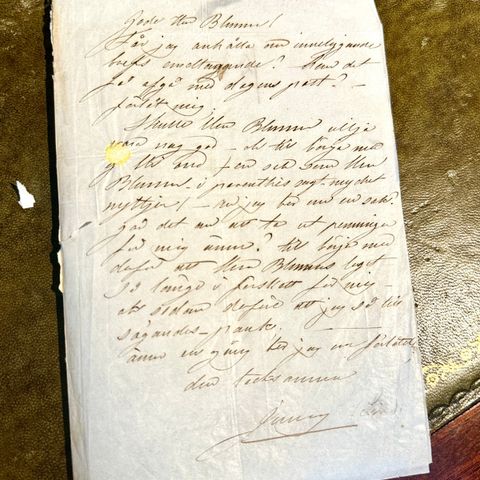 Gode Herr Blumm!
Får jag anhålla om inneliggande
brefs emottagande? Kan det
få afgå med dagens post? —
förlåt mig.
Skulle Herr Blumm vilja
vara nog god — att till börja med
Herr
Blumm i parenthes sagt mycket
— nu jag ber om en sak.
Går det an att ta ut penningar
för mig ännu? till börja med
derför att Herr Blumms legat
så länge i förskott för mig
och sedan derföre att jag så till
sägandes — pank.
ännu en gång ber jag om förlåtelse
den tacksamma
Jenny Lind